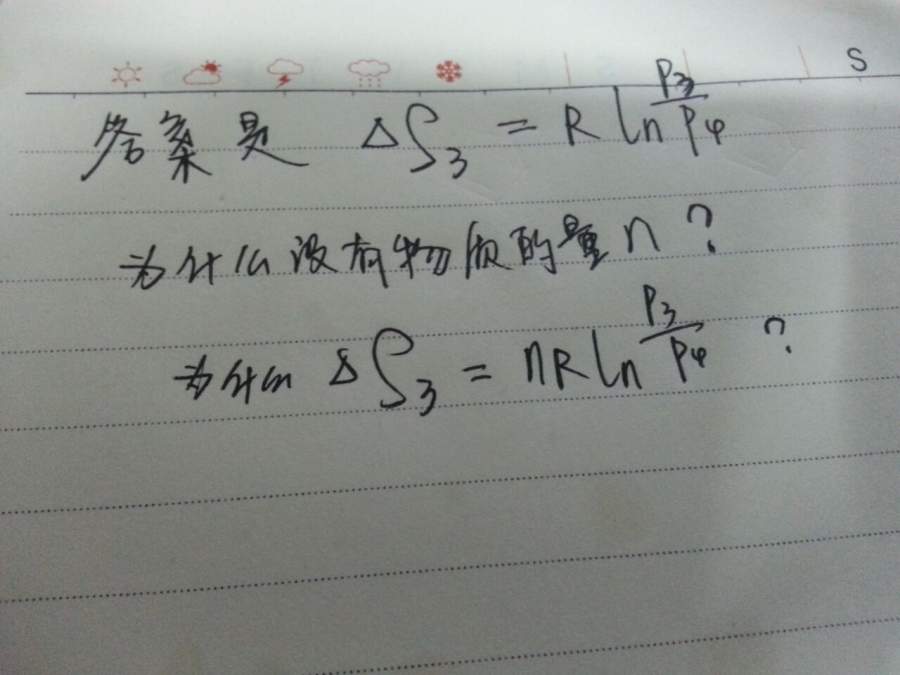 S
答案是 ΔS₃ = R ln P₃/P₄
为什么没有物质的量n?
为什么 ΔS₃ = nR ln P₃/P₄ ?